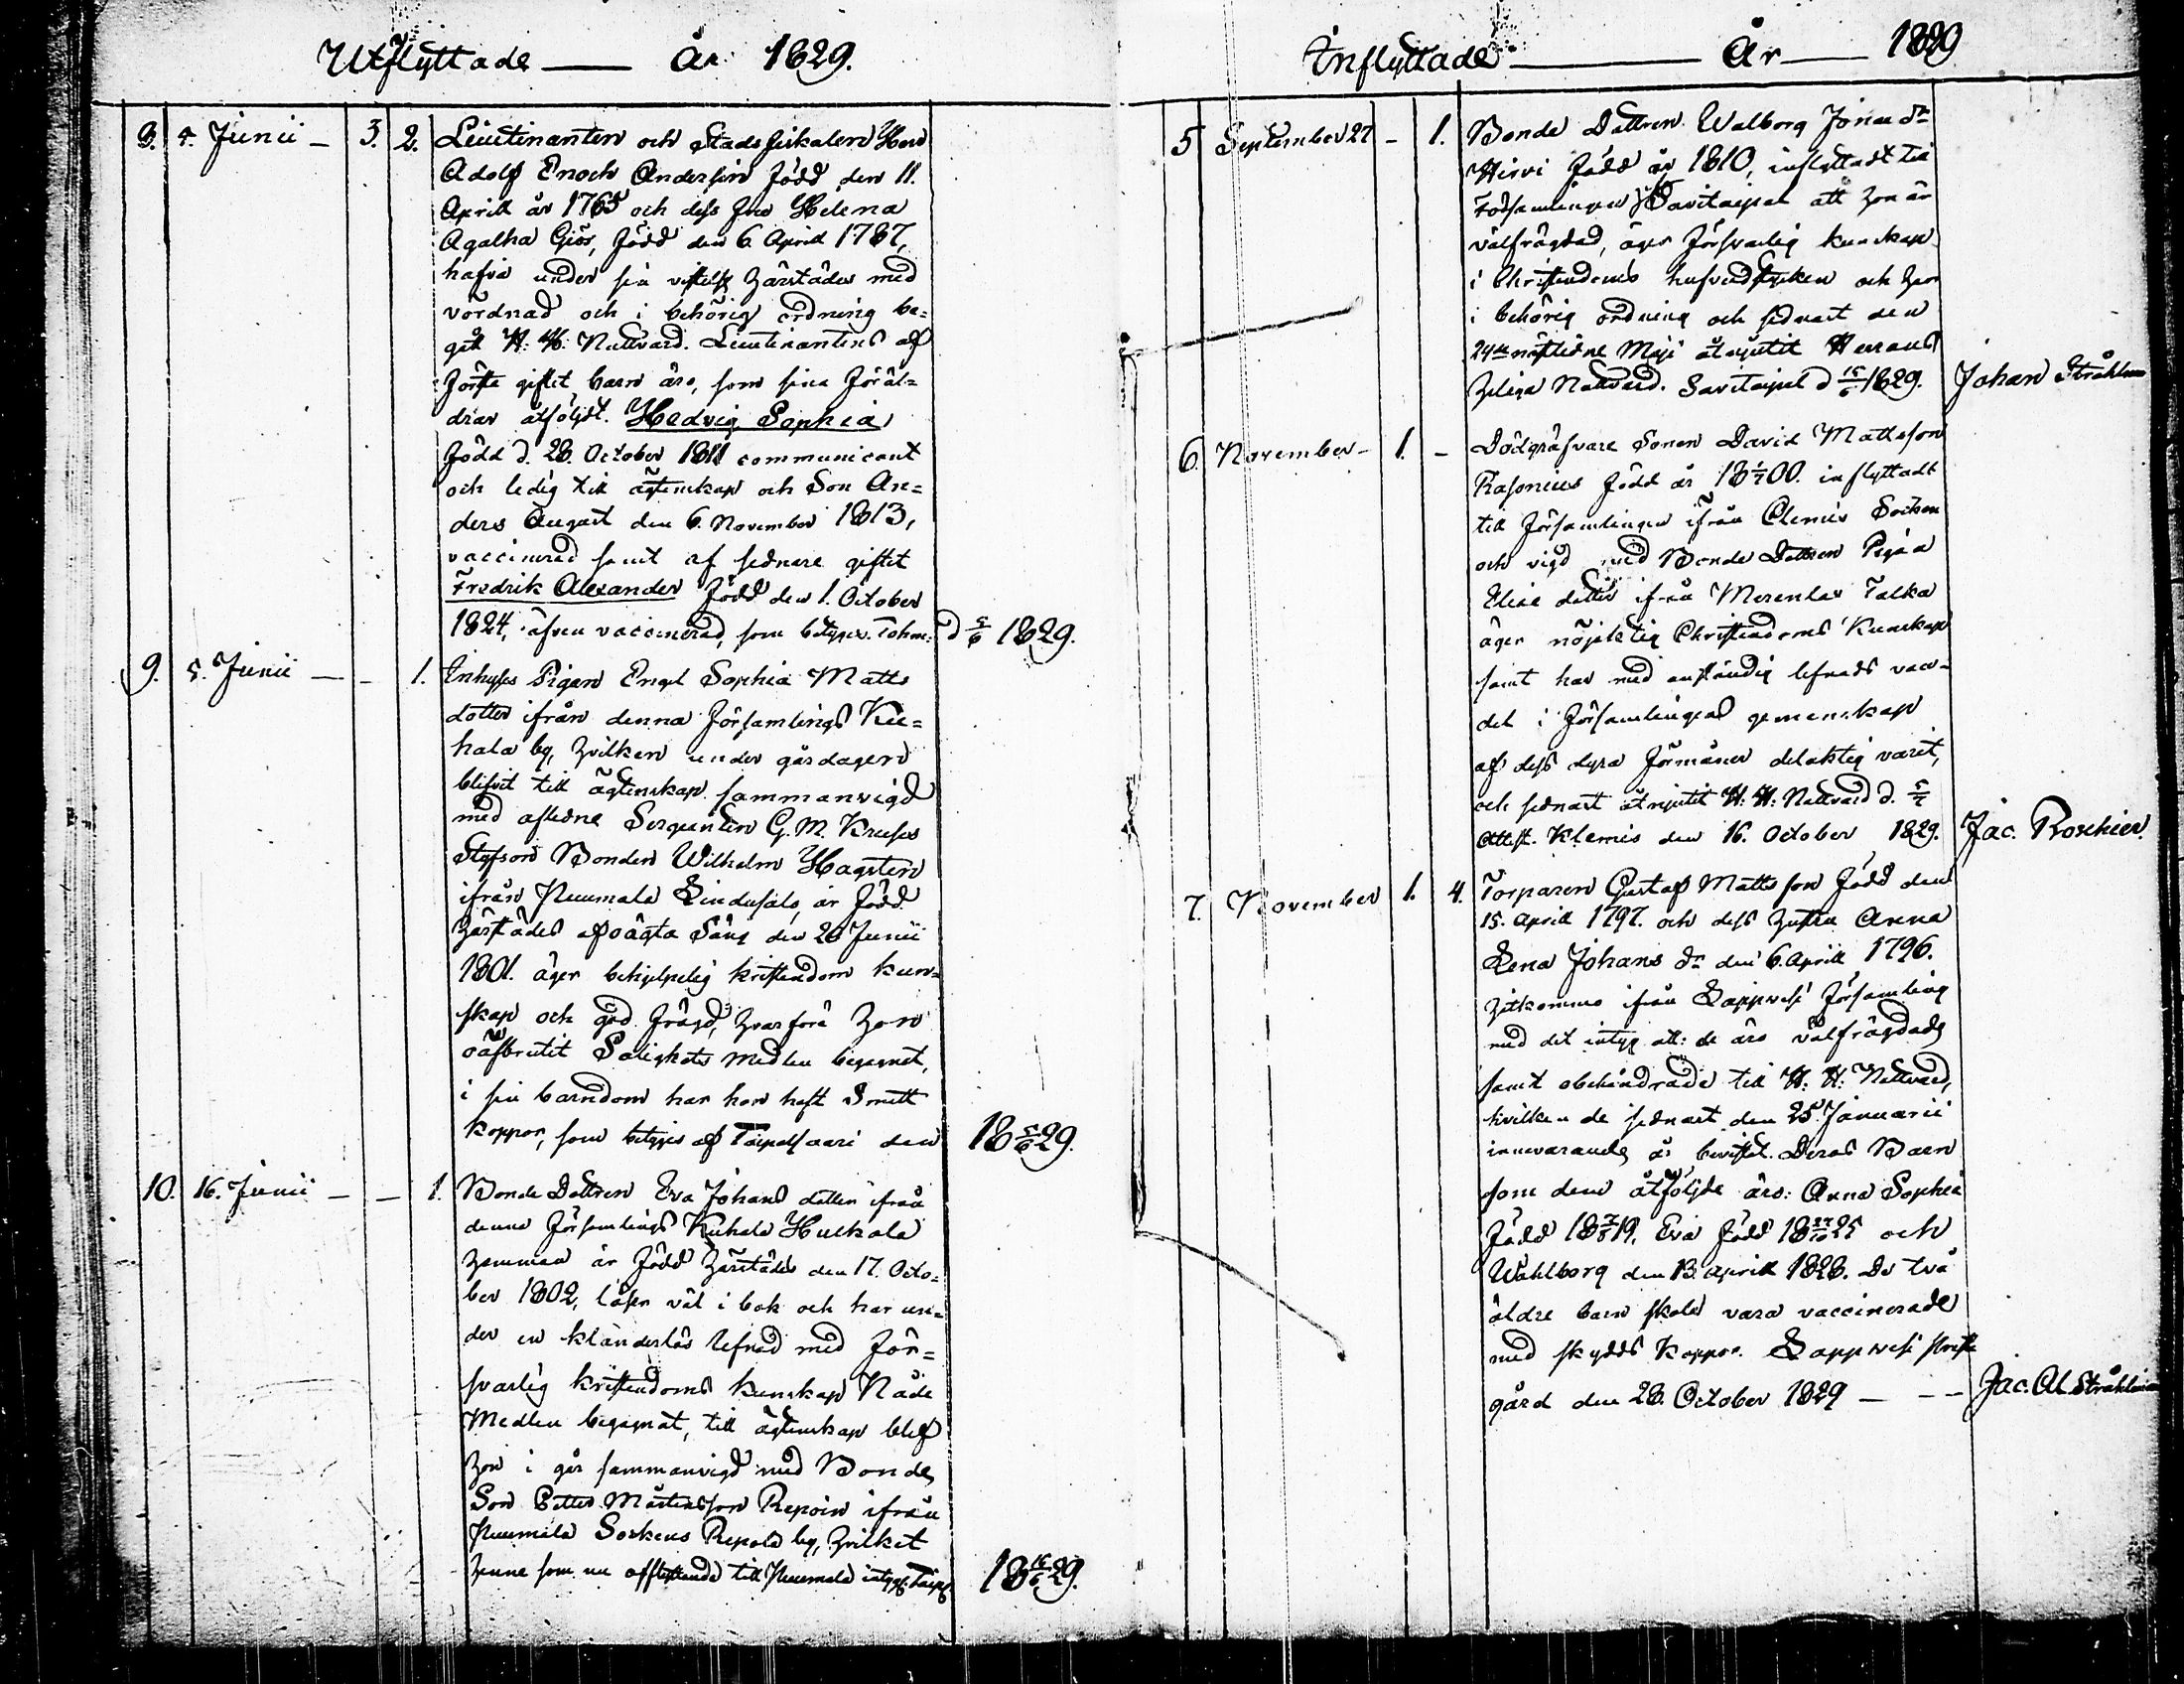 Utflyttade — År 1829.
4. Junii — 3. 2. Lieutinanten och Stads fiskalen Herr
Adolf Enoch Andersin född den 11.
Aprill år 1765 och dess fru Helena
Agatha Giös, född den 6. Aprill 1787,
hafva under sin härstädes med
vördnad och i behörig ordning be=
gått H: H: Nattvard. Lieutinantens af
förste giftet barn äro, som sina föräl=
drar åtföljdt. Hedvig Sophia
född d. 28. October 1811 communicant
och ledig till ägtenskap och Son An=
ders August den 6. November 1813,
vaccinerad samt af sednare giftet
Fredrik Alexander född den 1. October
1824, äfven vaccinerad, som betyges. d 5/6 1829.
9. 5. Junii — - 1. Inhyses Pigan Engl Sophia Matts
dotter ifrån denna församlings Ku=
hala by, hvilken under gårdagen
blifvit till ägtenskap sammanvigd
med afledne Sergeanten G. M. Kruses
Styfson Bonden Wilhelm Hagsten
ifrån Puumala Lindusalo, är född
härstädes af oägta Säng den 26 Junii
1801. äger behjelpelig kristendom kun=
skap och god frägd, hvarföre hon
oafbrutit Salighets medlen begagnat,
i sin barndom har hon haft Smitt
koppor, som betyges af Taipalsaari den 18 5/6 29.
10. 16. Junii — — 1. Bonde Dottren Eva Johans dotter ifrån
denna församlings Kuhala Hulkola
hemman är född härstädes den 17. Octo=
ber 1802, läser väl i bok och har un=
der en klanderlös lefnad med för=
svarlig kristendoms kunskap Nåde
Medlen begagnat, till ägtenskap blef
hon i går sammanvigd med Bonde
Son Petter Mårtensson Repoin ifrån
Puumala Sockens Repola by, hvilket
henne som nu afflyttande till Puumala intyges 18 16/6 29.
Inflyttade — År — 1829
5 September 27 - 1. Bonde Dottren Walborg Jonae dr
Hirvi född år 1810, inflyttadt till
Församlingen Savitaipal att hon är
välfrägdad, äger försvarlig kunskap
i Christendomens hufvudstycken och har
i behörig ordning och sednast den
24de nästledne Maji åtnjutit Herrans
heliga Nattvard. Savitaipal d 15/6 1829. Johan Stråhlman
6. November - 1. - Dödgräfvare Sonen David Mattsson
Rasonius född år 1800. inflyttadt
till församlingen ifrån Clemis Socken
och vigd med Bonde Dottren
Elias dotter ifrån Merenlax Talka
äger nöjaktig Christendoms Kunskap
samt har med anständig lefnads van=
del i församlingens gemenskap
af dess dyra förmåner delaktig varit,
och sednast åtnjutit H: H: Nattvard d.
Attest. Klemis den 16. October 1829. Jac. Roschier.
7. November 1. 4. Torparen Gustaf Matts son född den
15. Aprill 1797. och dess hustru Anna
Lena Johans dr den 6. Aprill 1796.
hitkomne ifrån Lappvesi församling
med det intyg att: de äro välfrägdade
samt obehindrade till H: H: Nattvard,
hvilken de sednast den 25. Januarii
innevarande år bevistat. Deras Barn
som dem åtföljde äro: Anna Sophia
född 18 19, Eva född 18 25 och
Wahlborg den 13 Aprill 1828. De två
äldre barn skola vara vaccinerade
med skydds koppor. Lappvesi Prest
gård den 28. October 1829 — - - Jac. Al. Stråhlman